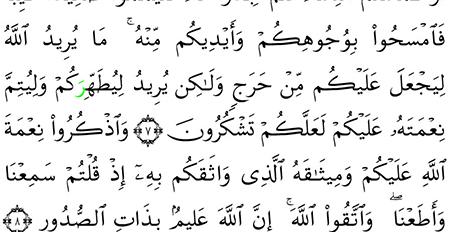 فَٱمۡسَحُواْ بِوُجُوهِكُمۡ وَأَيۡدِيكُم مِّنۡهُۚ مَا يُرِيدُ ٱللَّهُ
لِيَجۡعَلَ عَلَيۡكُم مِّنۡ حَرَجٖ وَلَٰكِن يُرِيدُ لِيُطَهِّرَكُمۡ وَلِيُتِمَّ
نِعۡمَتَهُۥ عَلَيۡكُمۡ لَعَلَّكُمۡ تَشۡكُرُونَ ٧ وَٱذۡكُرُواْ نِعۡمَةَ
ٱللَّهِ عَلَيۡكُمۡ وَمِيثَٰقَهُ ٱلَّذِي وَاثَقَكُم بِهِۦٓ إِذۡ قُلۡتُمۡ سَمِعۡنَا
وَأَطَعۡنَاۖ وَٱتَّقُواْ ٱللَّهَۚ إِنَّ ٱللَّهَ عَلِيمُۢ بِذَاتِ ٱلصُّدُورِ ٨